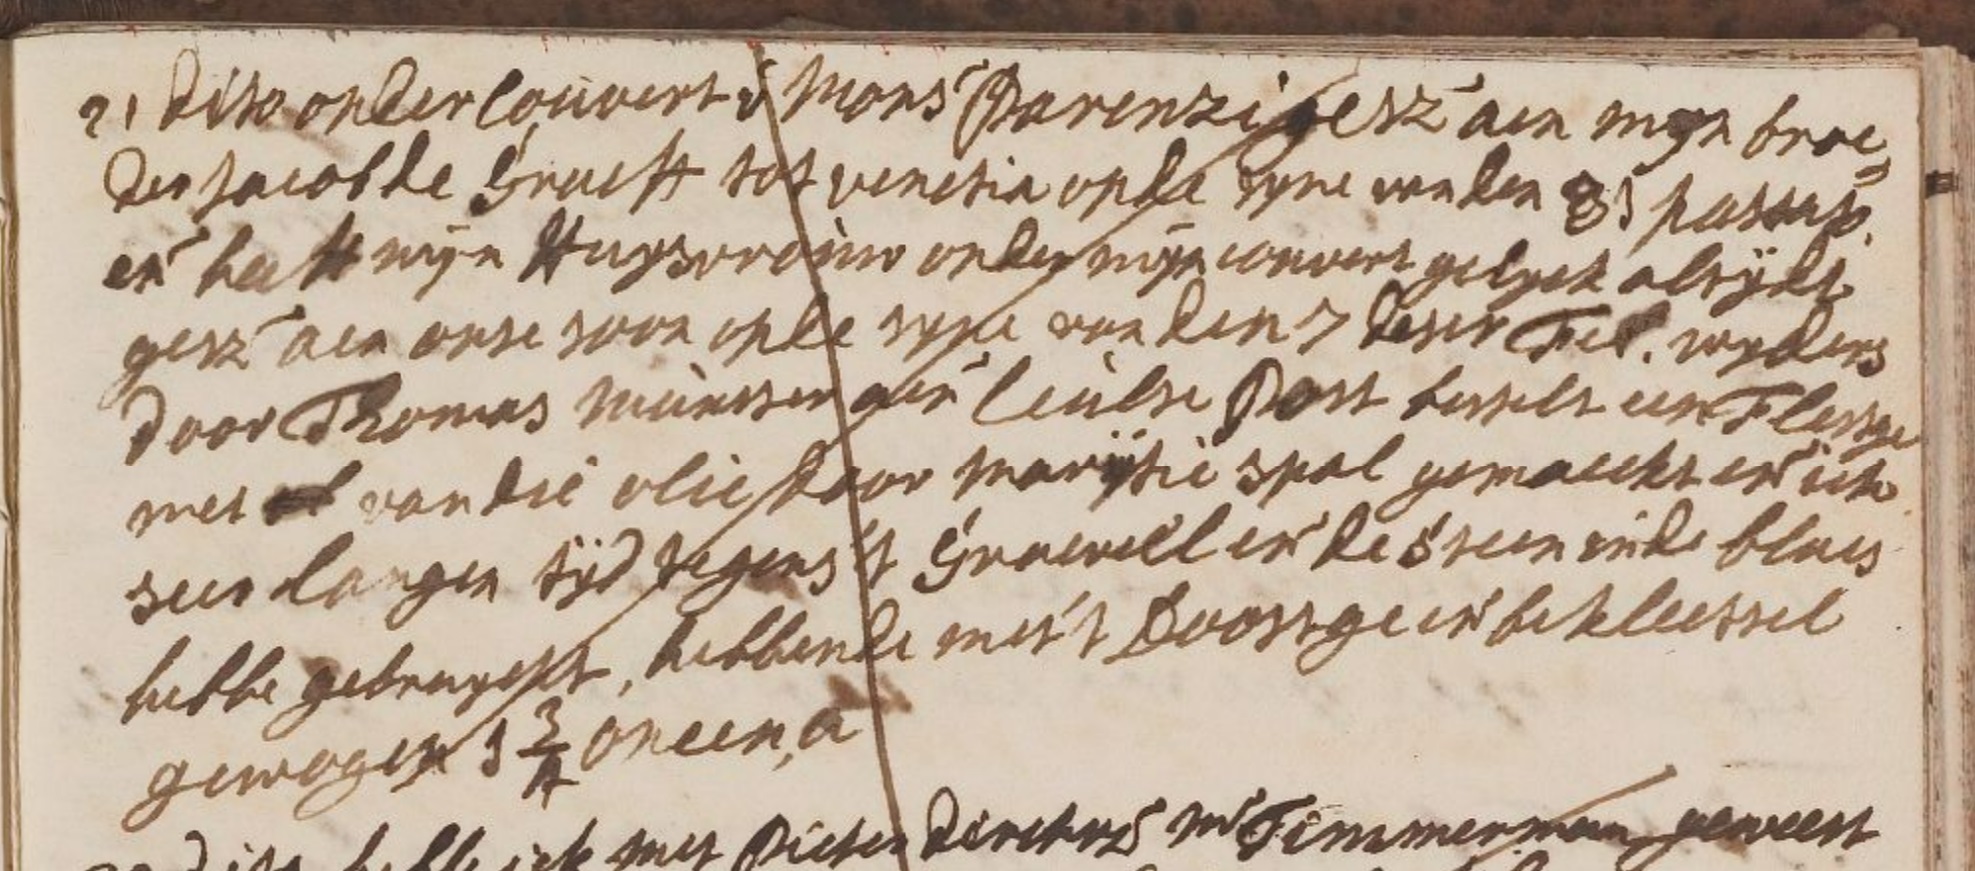 21 dito onder Couvert v Mons Parenzi gesz aen mijn broe=
der Jacob de Graeff tot venetia op de syne van den 31 passato.
en heeft mijn Huysvrouw onder mijn couvert gelyck altijdt
gesz aen onse soon op de syne van den 7 deser Feb. wyders
door Thomas Munster aen Ceulse Post bestelt een Flesge
met van die olie door Marijtie spal gemaeckt en ick
seer langen tijd tegens 't Graeveel en de steen in de blaes
hebbe gebruyckt, hebbende met 't Doosge en bekleetsel
gewogen 3 3/4 oncen, a
dito hebbe ick met Pieter Dircksz Mr Timmerman geweest